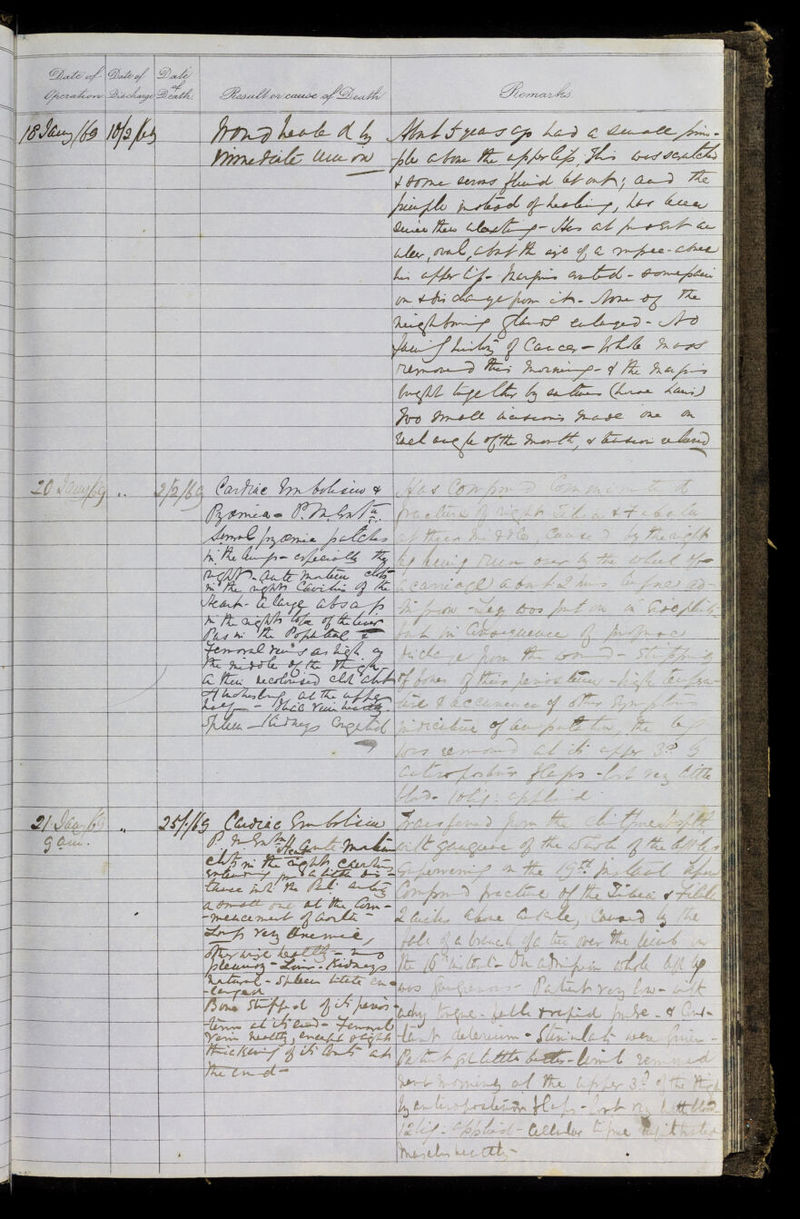 Date of Operation
Date of Discharge
Date of Death
Result or cause of Death
Remarks
18 Jany/69
10/2/69
Wound healed by
immediate union
About 5 years ago had a small pim-
ple above the upper lip. This was scratched
& some serous fluid let out; and the
pimple instead of healing, has been
since then ulcerating - Has at present an
ulcer, oval, abt the size of a rupee - above
his upper lip - Margins everted - some pain
in & discharge from it - None of the
neighbouring glands enlarged - No
family history of Cancer - Whole mass
removed this morning - & the margins
brought together by sutures (horse hair)
Two small incisions made one on
each angle of the mouth, & tension relieved
20 Jany/69
"
2/2/69
Cardiac Embolism &
Pyæmia - P.M. Extn
Several pyæmic patches
in the lungs - especially the
right - ante mortem clots
in the right cavities of the
Heart - A large abscess
in the right lobe of the liver
Pus in the Popliteal &
Femoral veins as high as
the middle of the thigh -
a thin decolorised clot
at the upper
half -
Spleen - Kidneys congested
Has Compound Comminuted
fracture of right Tibia & Fibula
at their middle, caused by the right
leg being run over by the wheel of
a carriage about 2 hrs before ad-
mission - Leg was put on an
in consequence of profuse
discharge from the wound - stripping
of bones of their periosteum - high tempera-
ture & occurrence of other symptoms
indicative of amputation, the leg
was removed at its upper 3rd by
anteroposterior flaps - lost very little
blood - 10 lig: applied
21 Jany/69
9 a.m.
"
25/1/69
Cardiac Embolism
P.M. Extn
Ante mortem
clots in the right
extending a little dis-
tance into the Pul: artery
a small one at the com-
-mencement of aorta -
Lungs very anæmic,
otherwise healthy - no
pleurisy - Liver - Kidneys
natural - Spleen little en-
-larged
Bone stripped of its perios-
teum at its end - Femoral
vein healthy, except slight
thickening of its coats at
the end -
Transferred from the
with gangrene of the whole of the
supervening on the 19th instant upon
Compound fracture of the Tibia & Fibula
2 inches above ankle, caused by the
fall of a branch of a tree over the limb on
the 16th instant - On admission whole left leg
was gangrenous - Patient very low - with
dry tongue - feeble & rapid pulse - & Cons-
tant delerium - Stimulants were given -
Patient got little better - limb removed
next morning at the upper 3rd of the thigh
by anteroposterior flaps - lost very little blood
12 lig: applied - Cellular tissue infiltrated
Muscles healthy -